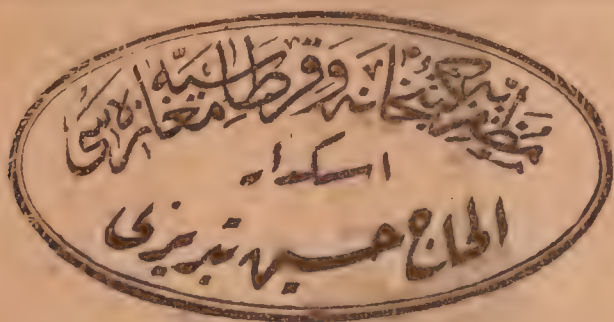 كتبخانه و قرطاسیه مغازه سی
اسكدار
الحاج حسین تبریزی